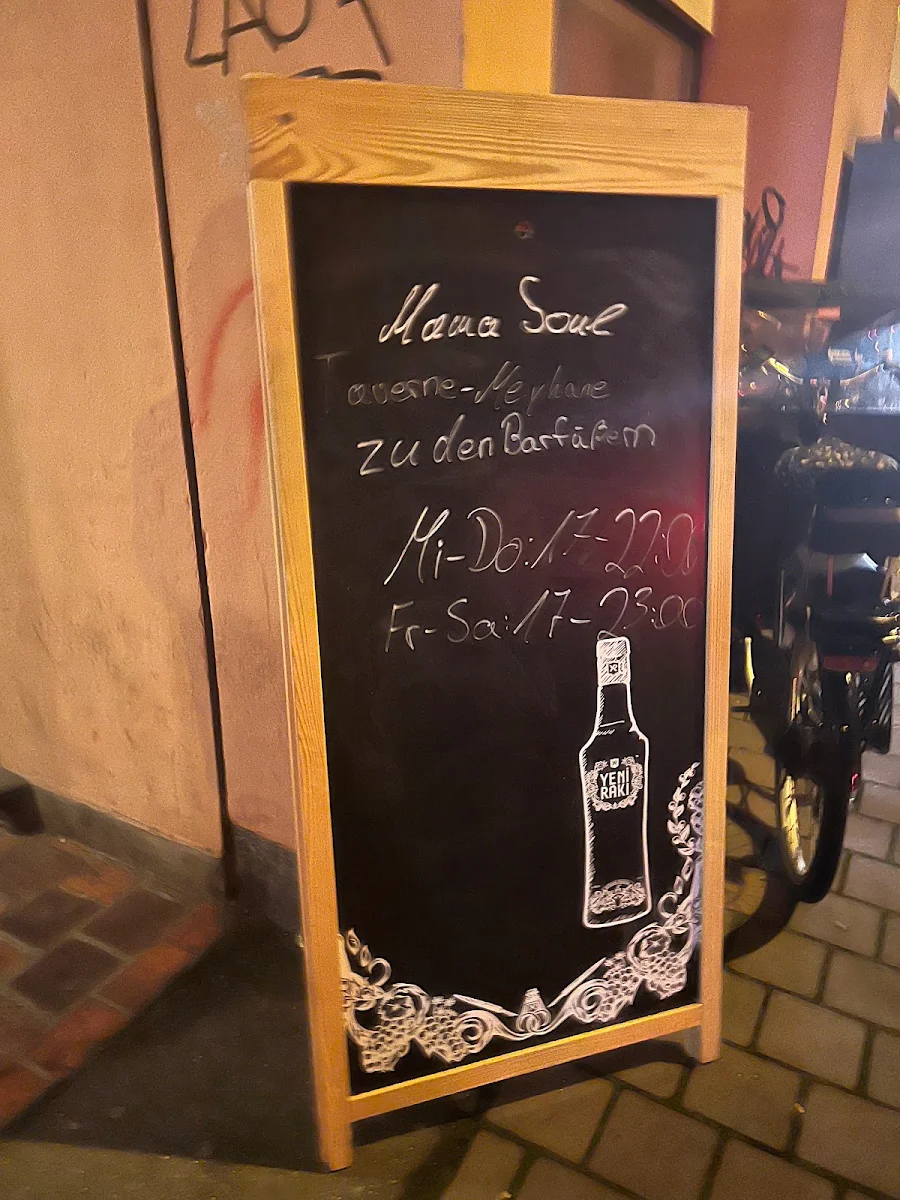 Mama Soul
Taverne-Meyhane
zu den Barfüßern
Mi-Do: 17-22:00
Fr-Sa: 17-23:00
YENİ
RAKI